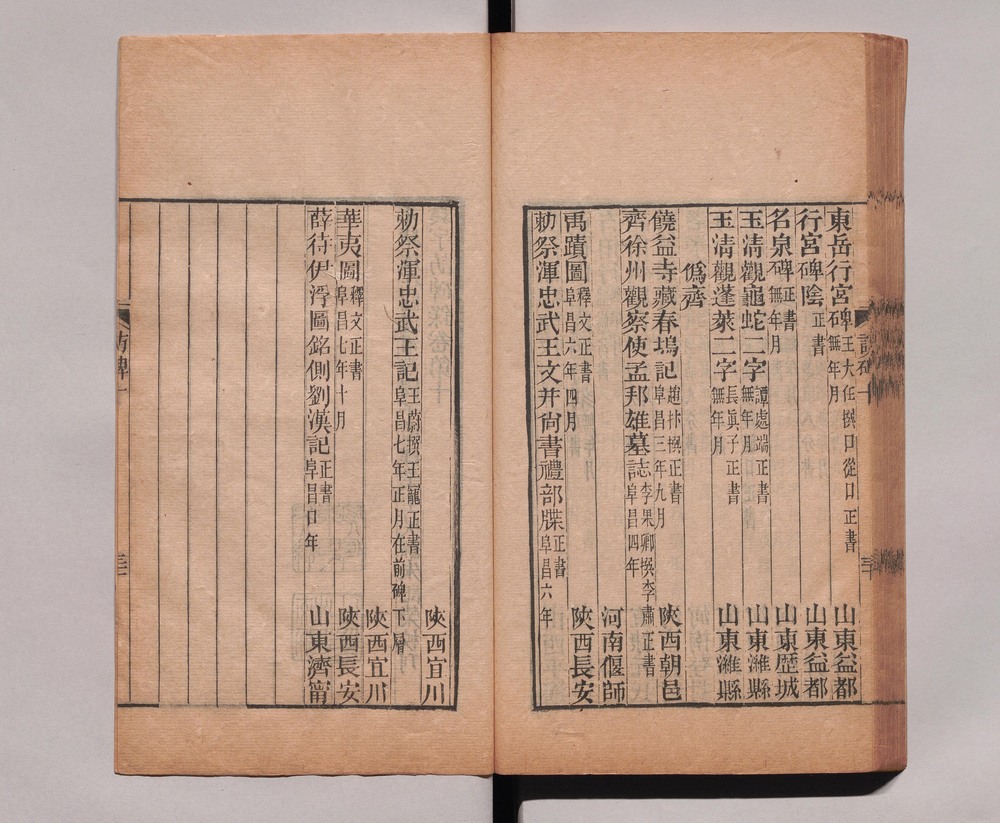 東岳行宮碑王大任撰口從口正書無年月
山東益都
行宮碑陰正書
山東益都
名泉碑正書無年月
山東歷城
玉清觀龜蛇二字譚處端正書無年月
山東濰縣
玉清觀蓬萊二字長眞子正書無年月
山東濰縣
僞齊
饒益寺藏春塢記趙抃撰正書阜昌三年九月
陝西朝邑
齊徐州觀察使孟邦雄墓誌李杲卿撰李肅正書阜昌四年
河南偃師
禹蹟圖釋文正書阜昌六年四月
陝西長安
勅祭渾忠武王文幷尙書禮部牒正書阜昌六年
陝西宜川
勅祭渾忠武王記王蔚撰王寵正書阜昌七年正月在前碑下層
陝西宜川
華夷圖釋文正書阜昌七年十月
陝西長安
薛待伊浮圖銘側劉漢記正書阜昌口年
山東濟甯
訪碑十
三十
訪碑十